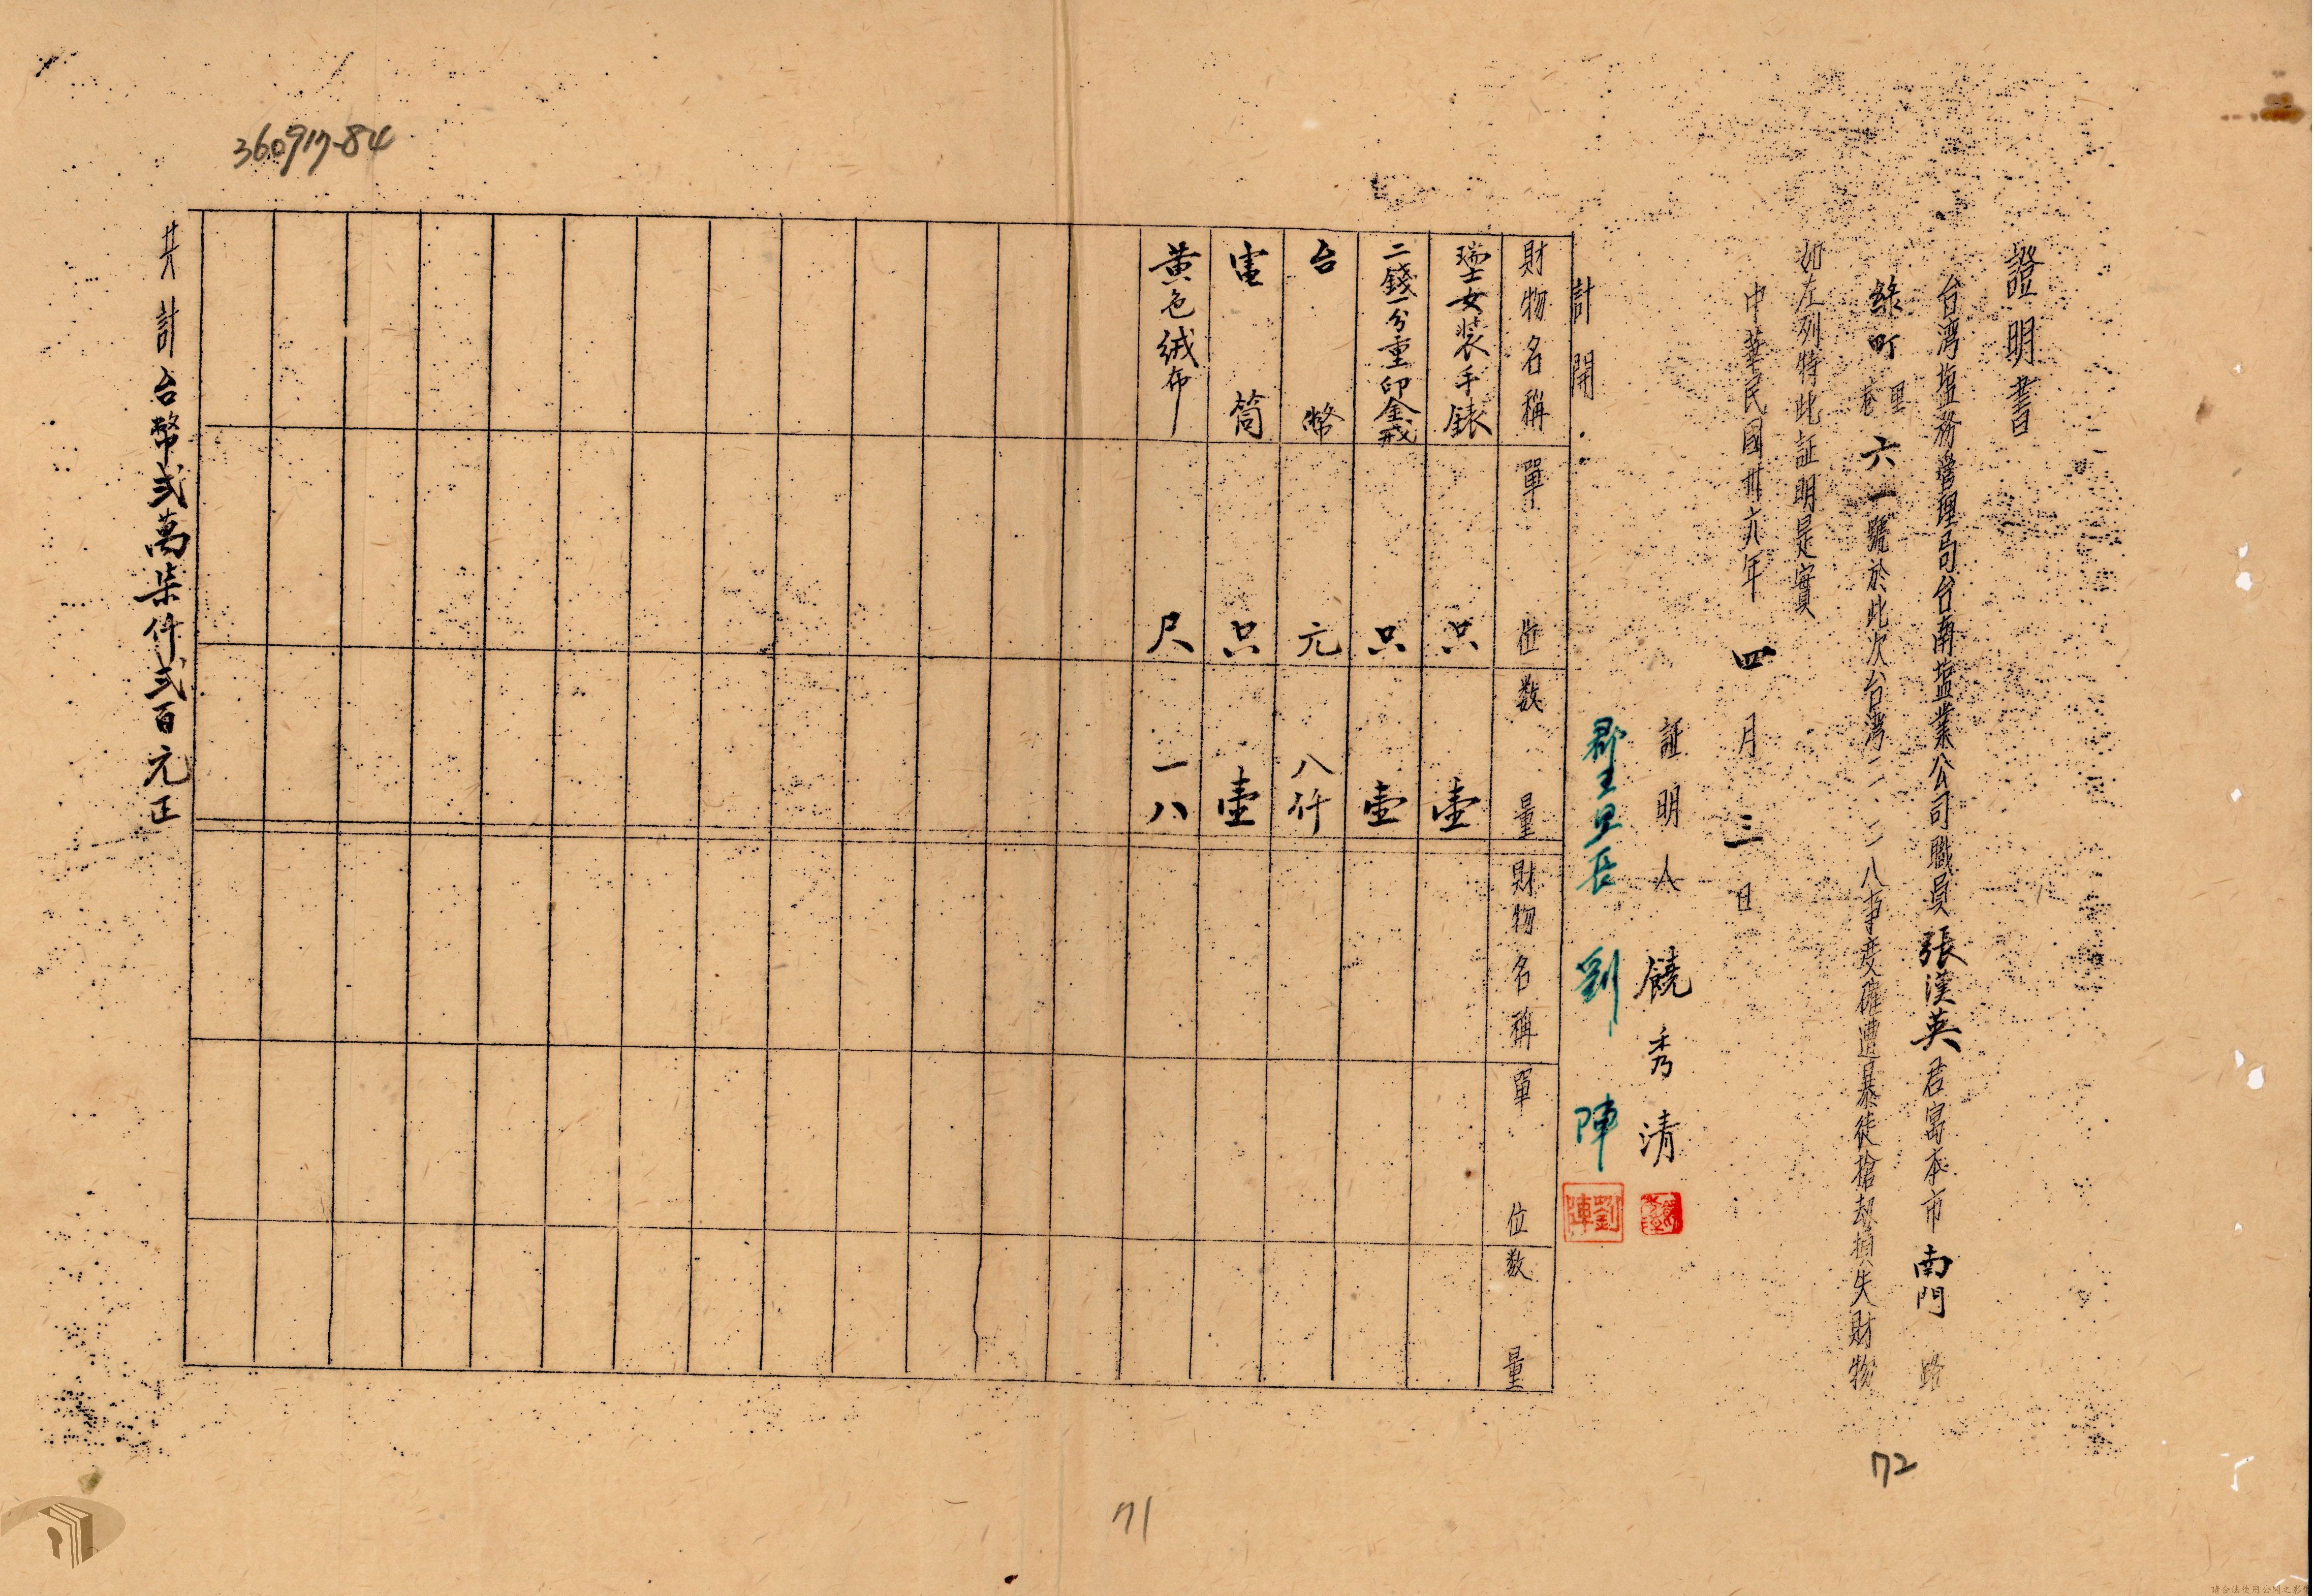 證明書
台湾塩務管理局台南塩業公司職員張漢英君寓本市南門路
綠町里巷六一號於此次台湾二、二八事变確遭暴徒搶劫損失財物
如左列特此証明是實
中華民國卅六年四月三日
証明人 饒秀清
郡王里長 劉陣
劉陣
計開：
財物名稱 單位 数量 財物名稱 單位 数量
瑞士女装手錶 只 壹
二錢一分重印金戒 只 壹
台幣 元 八仟
電筒 只 壹
黃色絨布 尺 一八
共計台幣弍萬柒仟弍百元正
360917-84
72
71
請合法使用公開之影像